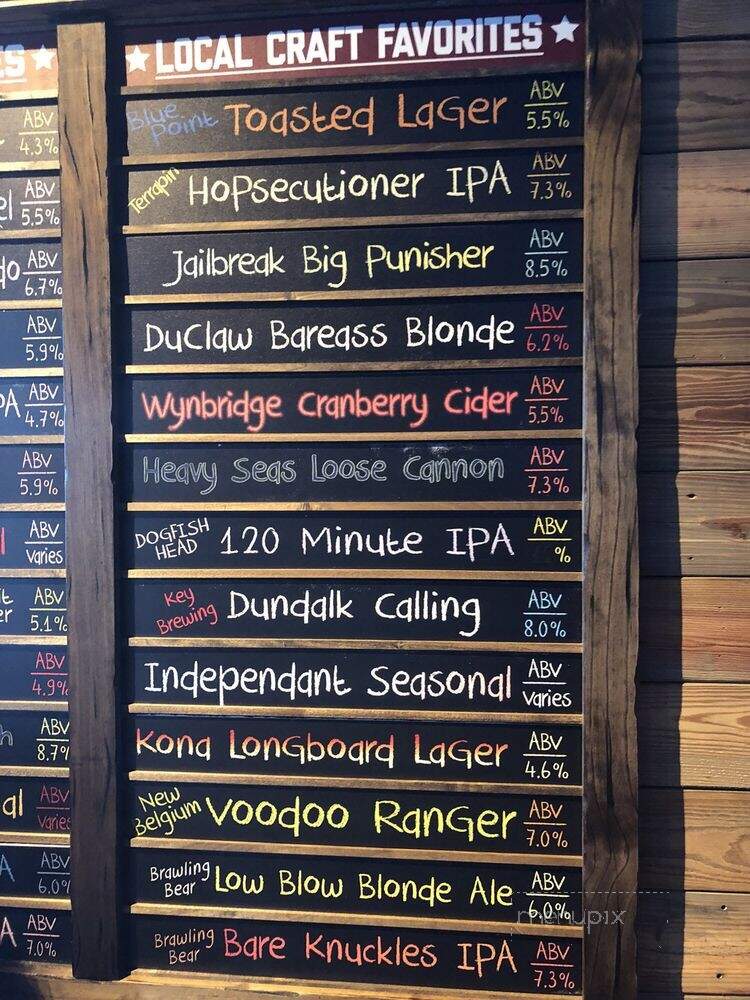 ES
LOCAL CRAFT FAVORITES
ABV
4.3%
el ABV
5.5%
do ABV
6.7%
ABV
5.9%
PA ABV
4.7%
ABV
5.9%
ABV
varies
ABV
er 5.1%
ABV
4.9%
h ABV
8.7%
al ABV
varies
A ABV
6.0%
A ABV
7.0%
Blue
Point Toasted Lager ABV
5.5%
Terrapin Hopsecutioner IPA ABV
7.3%
Jailbreak Big Punisher ABV
8.5%
DuClaw Bareass Blonde ABV
6.2%
Wynbridge Cranberry Cider ABV
5.5%
Heavy Seas Loose Cannon ABV
7.3%
DOGFISH
HEAD 120 Minute IPA ABV
%
Key
Brewing Dundalk Calling ABV
8.0%
Independant Seasonal ABV
varies
Kona Longboard Lager ABV
4.6%
New
Belgium Voodoo Ranger ABV
7.0%
Brawling
Bear Low Blow Blonde Ale ABV
6.0%
Brawling
Bear Bare Knuckles IPA ABV
7.3%
menupix